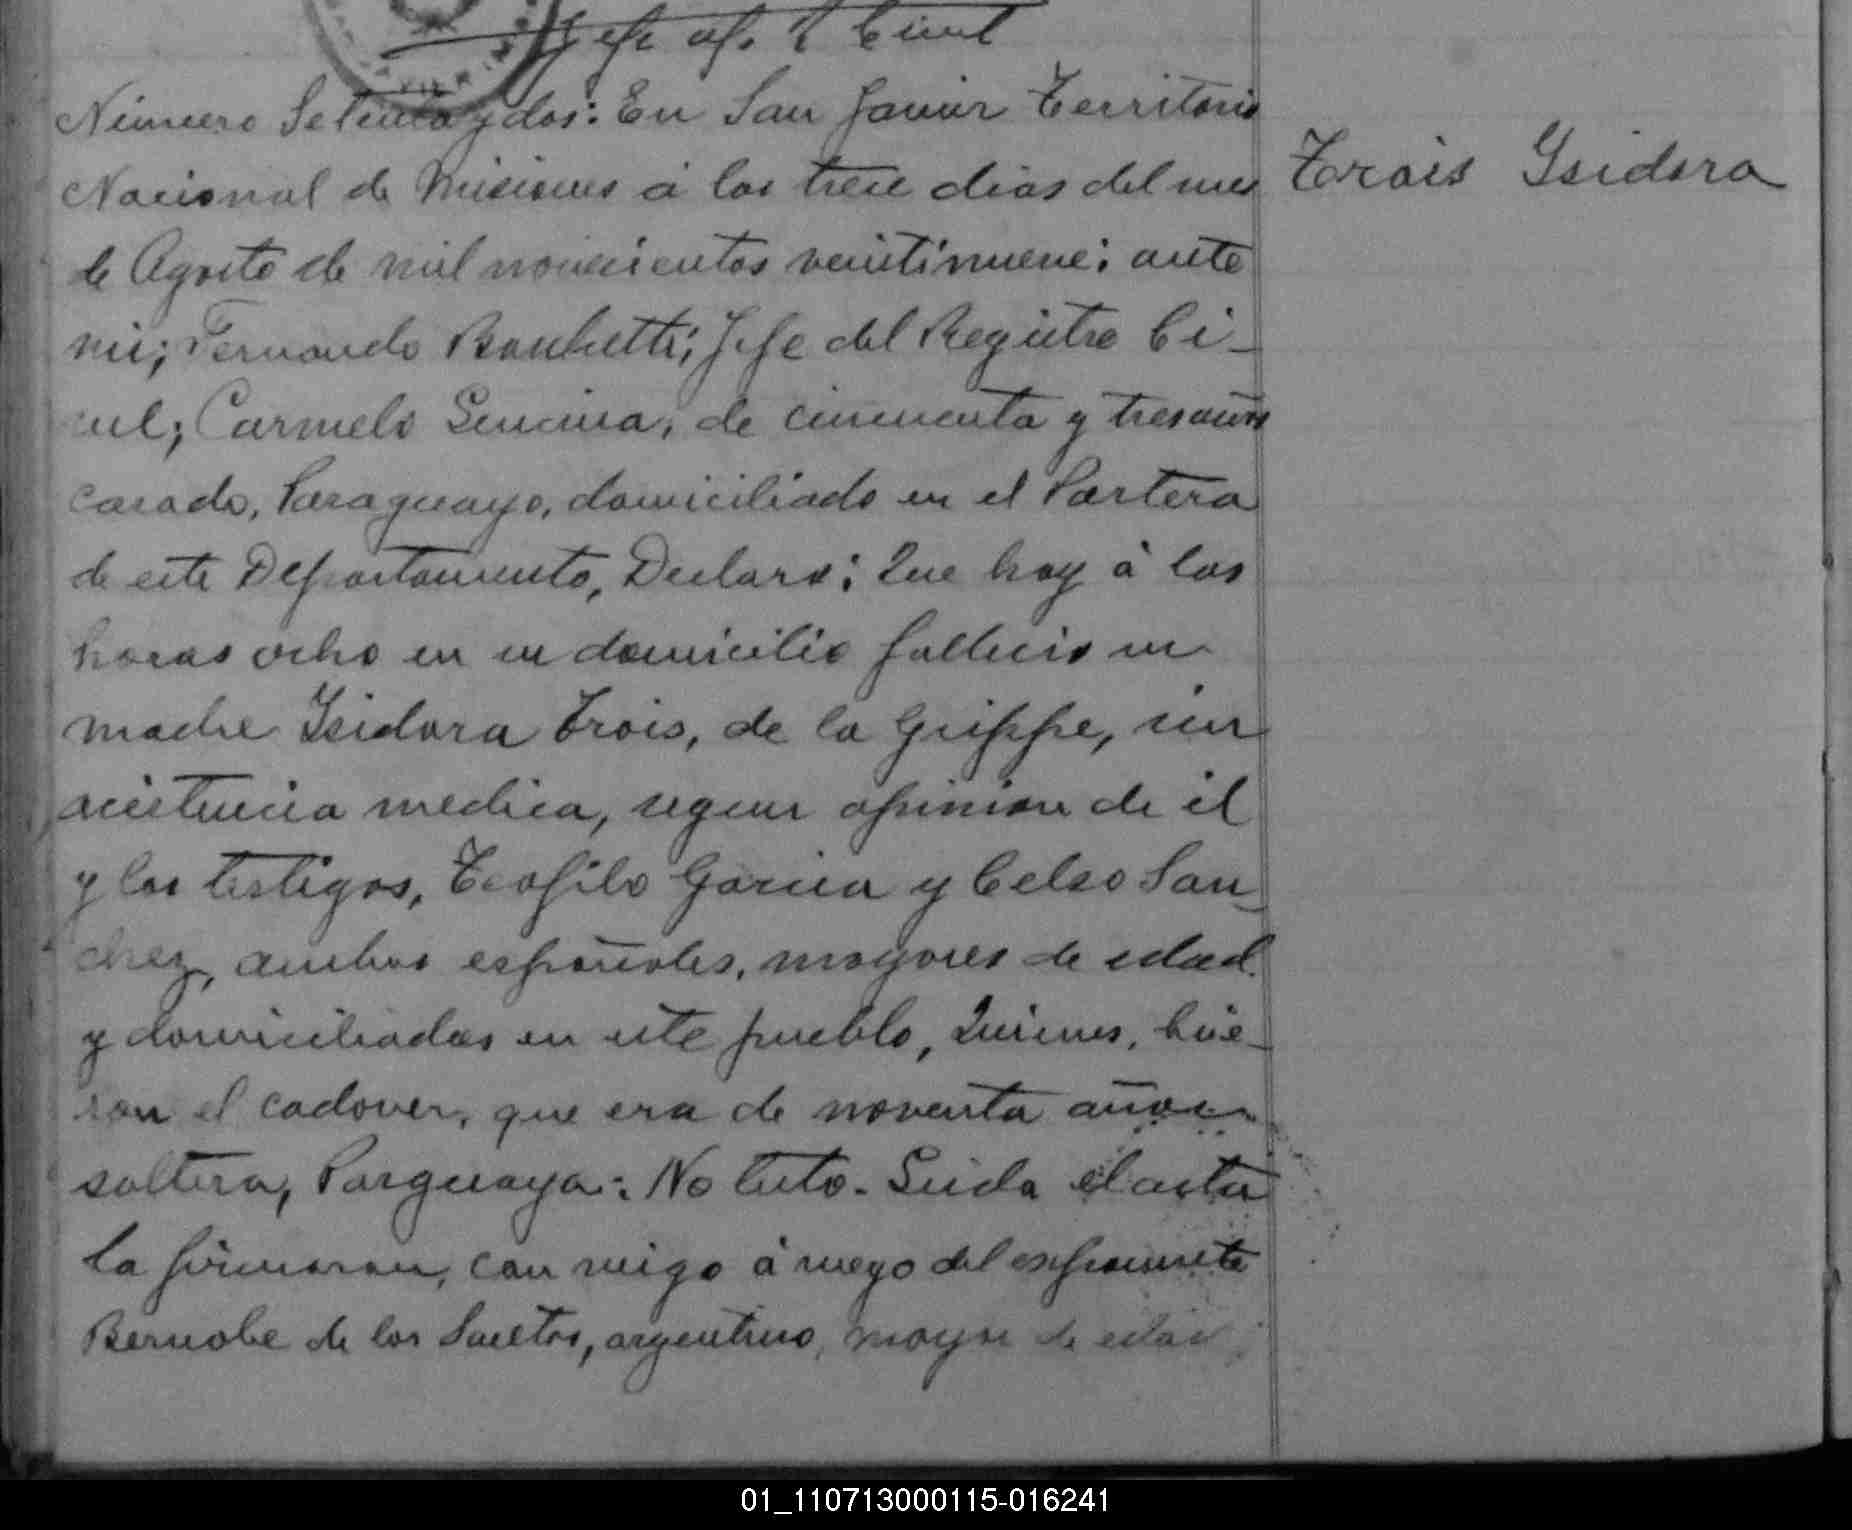 Jefe of. R Civil
Número Setenta y dos: En San Javier Territorio
Nacional de Misiones á los trece dias del mes
de Agosto de mil novecientos veintinueve: ante
mi; Fernando Jefe del Registro Ci-
vil; Carmelo de cincuenta y tres años
casado, Paraguayo, domiciliado en el Portera
de este Departamento, Declaro: Que hoy á las
horas ocho en su domicilio fallecio su
madre Isidora Trois, de la Grippe, sin
acistencia medica, segun opinion de él
y los testigos, Teofilo Garcia y Celso San-
chez, ambos españoles, mayores de edad
y domiciliados en este pueblo, Quienes, bie-
ron el cadover, que era de noventa años
soltera, Parguaya: No testo. Leida el acta
la firmaron, con migo á ruego del exponente
Bernabe de los Santos, argentino, mayor de edad,
Trois Ysidora
01_110713000115-016241